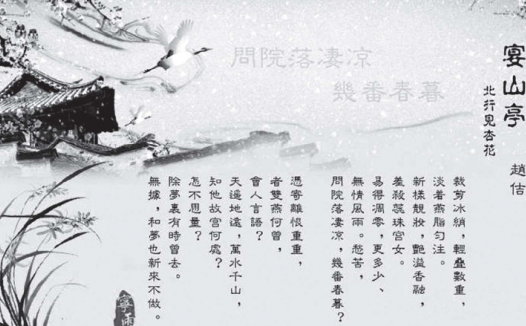 宴山亭
北行見杏花
趙佶
問院落凄凉
幾番春暮
裁剪冰綃，輕疊數重，
淡着燕脂匀注。
新樣靚妝，艷溢香融，
羞殺蕊珠宮女。
易得凋零，更多少、
無情風雨。愁苦，
問院落凄凉，幾番春暮？
憑寄離恨重重，
者雙燕何曾，
會人言語？
天遥地遠，萬水千山，
知他故宮何處？
怎不思量？
除夢裏有時曾去。
無據，和夢也新來不做。